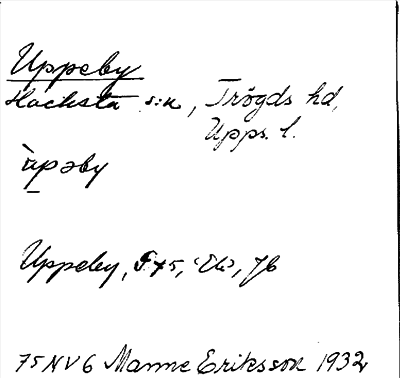 Uppeby
Hacksta s:n, Trögds hd,
Upps. l.
ùpəby
Uppeby, 75, Ek, Jb
75 NV 6 Manne Eriksson 1932